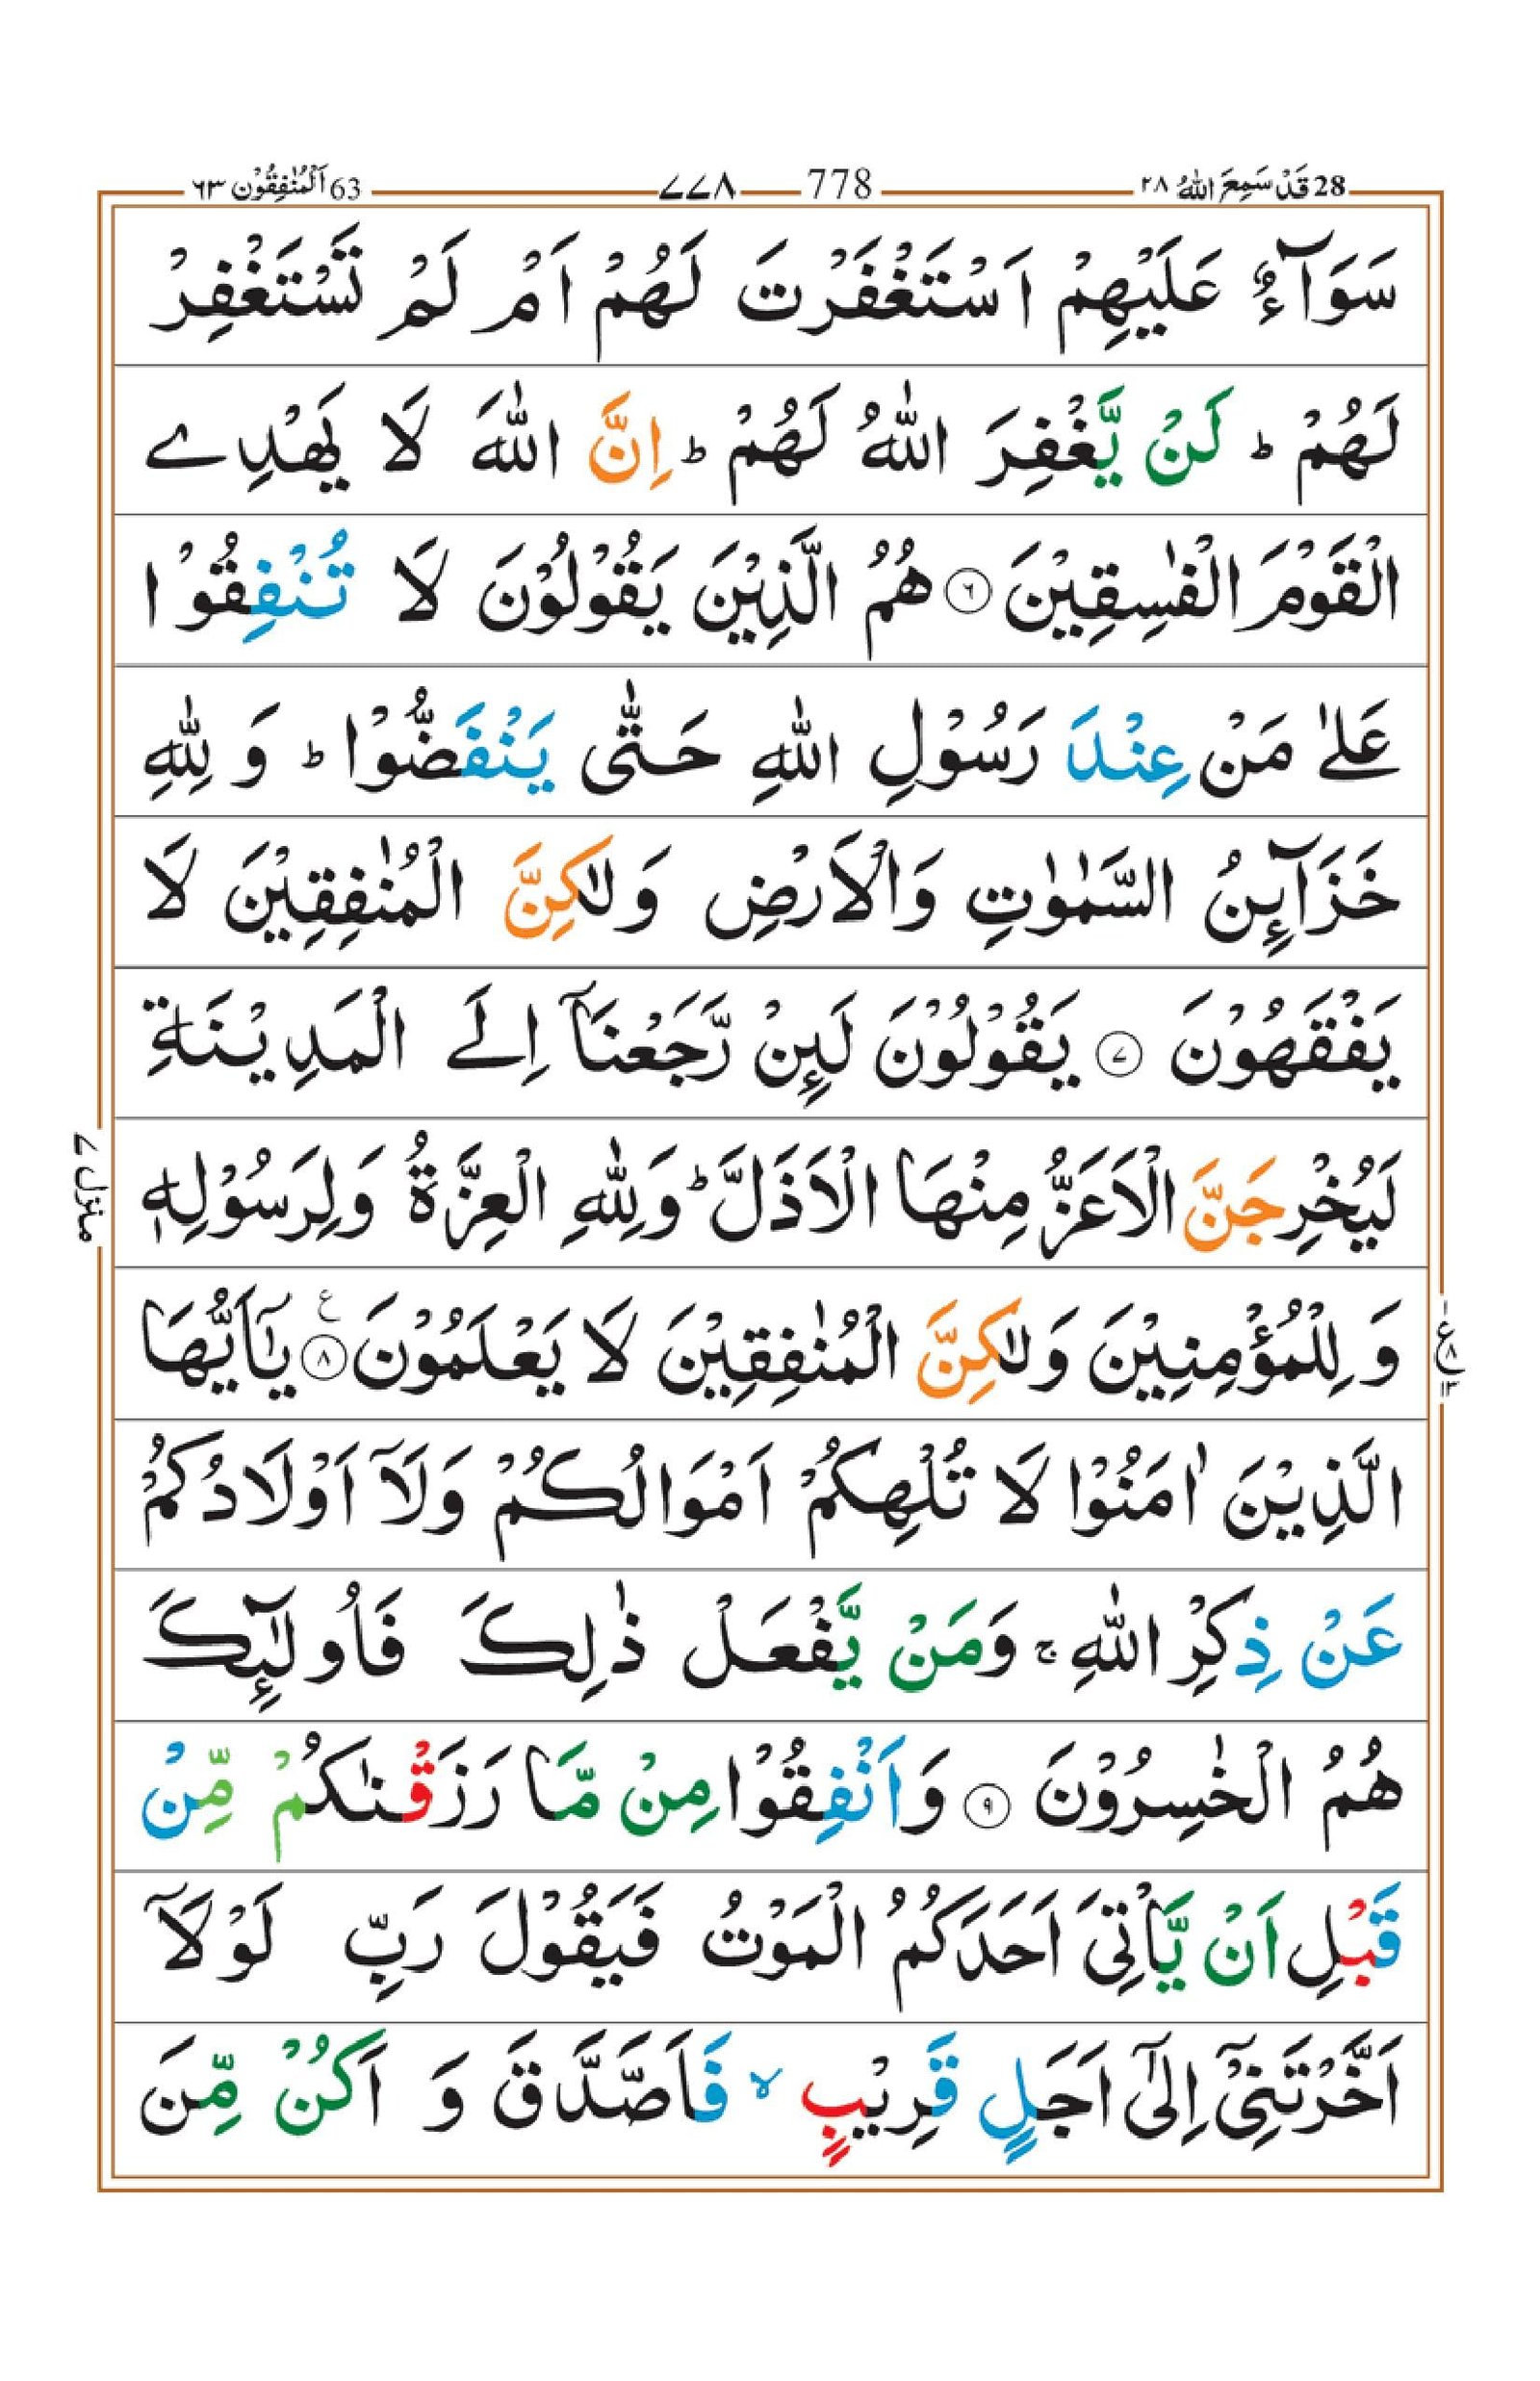 28 قَدْ سَمِعَ اللّٰهُ ٢٨ 778 ٧٧٨ 63 اَلْمُنٰفِقُوْن ٦٣
سَوَآءٌ عَلَيْهِمْ اَسْتَغْفَرْتَ لَهُمْ اَمْ لَمْ تَسْتَغْفِرْ
لَهُمْ ؕ لَنْ يَّغْفِرَ اللّٰهُ لَهُمْ ؕ اِنَّ اللّٰهَ لَا يَهْدِے
الْقَوْمَ الْفٰسِقِيْنَ ۶ هُمُ الَّذِيْنَ يَقُوْلُوْنَ لَا تُنْفِقُوْا
عَلٰے مَنْ عِنْدَ رَسُوْلِ اللّٰهِ حَتّٰى يَنْفَضُّوْا ؕ وَ لِلّٰهِ
خَزَآىِٕنُ السَّمٰوٰتِ وَالْاَرْضِ وَلٰكِنَّ الْمُنٰفِقِيْنَ لَا
يَفْقَهُوْنَ ۷ يَقُوْلُوْنَ لَىِٕنْ رَّجَعْنَاۤ اِلَے الْمَدِيْنَةِ
لَيُخْرِجَنَّ الْاَعَزُّ مِنْهَا الْاَذَلَّ ؕ وَلِلّٰهِ الْعِزَّةُ وَلِرَسُوْلِهٖ
وَ لِلْمُؤْمِنِيْنَ وَلٰكِنَّ الْمُنٰفِقِيْنَ لَا يَعْلَمُوْنَ ۸ ع يٰۤاَيُّهَا
الَّذِيْنَ اٰمَنُوْا لَا تُلْهِكُمْ اَمْوَالُكُمْ وَلَاۤ اَوْلَادُكُمْ
عَنْ ذِكْرِ اللّٰهِ ۚ وَمَنْ يَّفْعَلْ ذٰلِكَ فَاُولٰٓىِٕكَ
هُمُ الْخٰسِرُوْنَ ۹ وَاَنْفِقُوْا مِنْ مَّا رَزَقْنٰكُمْ مِّنْ
قَبْلِ اَنْ يَّاْتِيَ اَحَدَكُمُ الْمَوْتُ فَيَقُوْلَ رَبِّ لَوْلَاۤ
اَخَّرْتَنِيْۤ اِلٰۤى اَجَلٍ قَرِيْبٍ ۙ فَاَصَّدَّقَ وَ اَكُنْ مِّنَ
منزل ٧
ع ١ ٨ ١٣